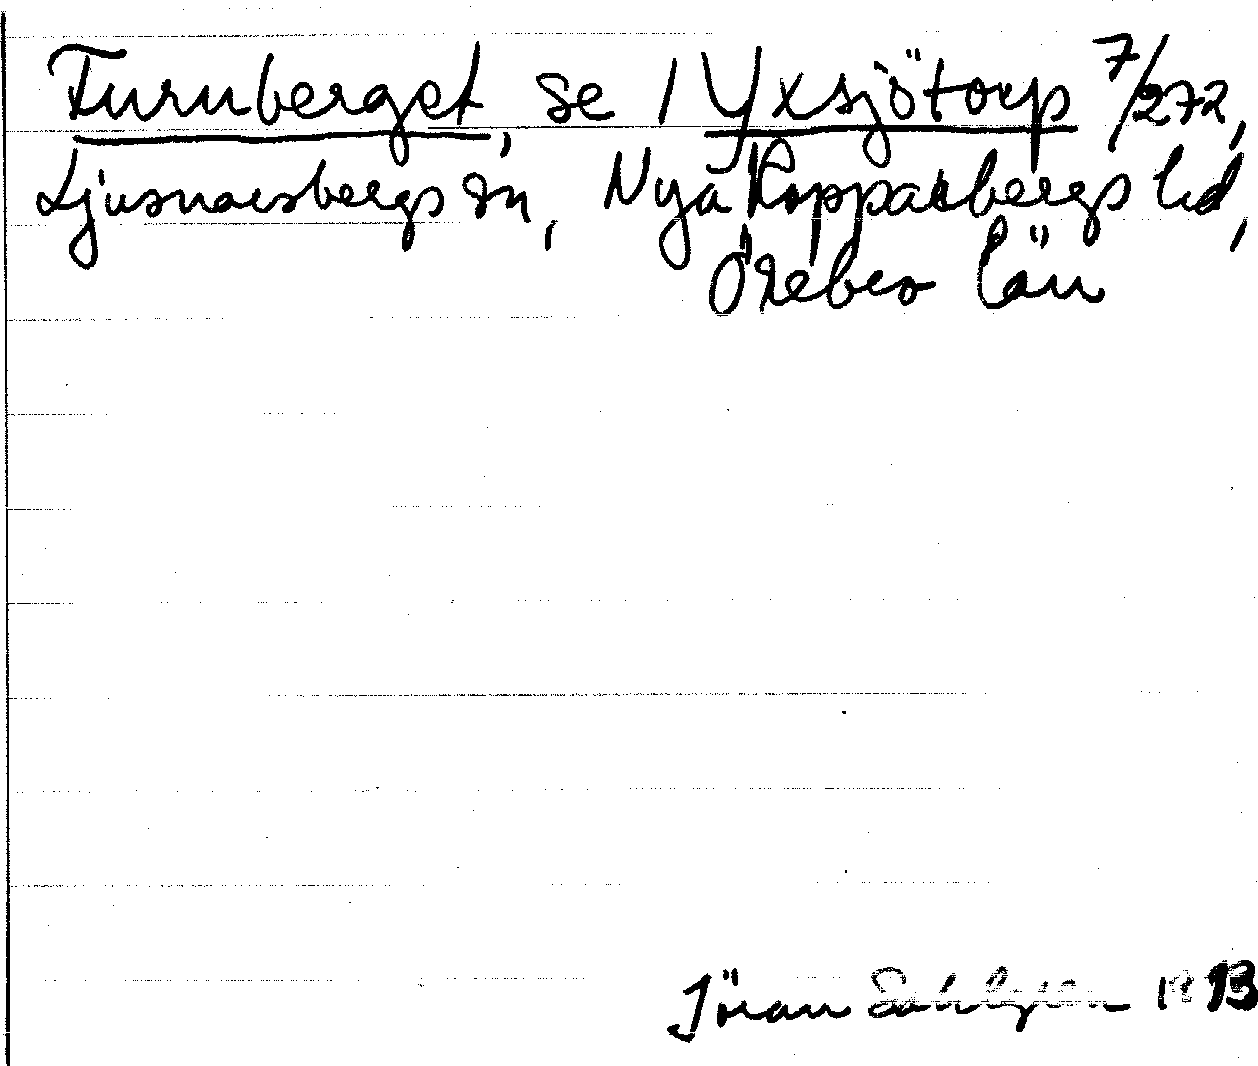 Turnberget, se 1 Yxsjötorp 7/272,
Ljusnarsbergs sn, Nya Kopparbergs bd,
Örebro län
Jöran Sahlgren 1913